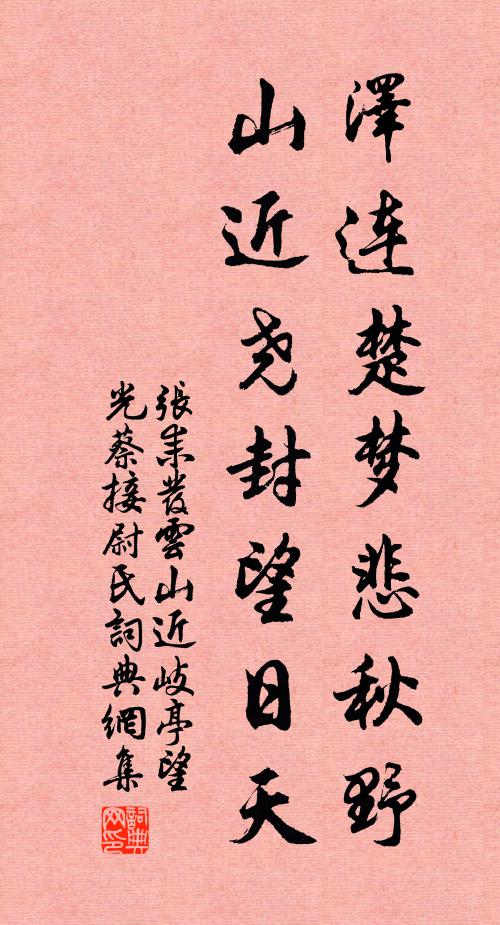 澤連楚梦悲秋野
山近尧封望日天
張耒發雲山近岐亭望
光蔡接尉氏詞典網集
詞典
网印